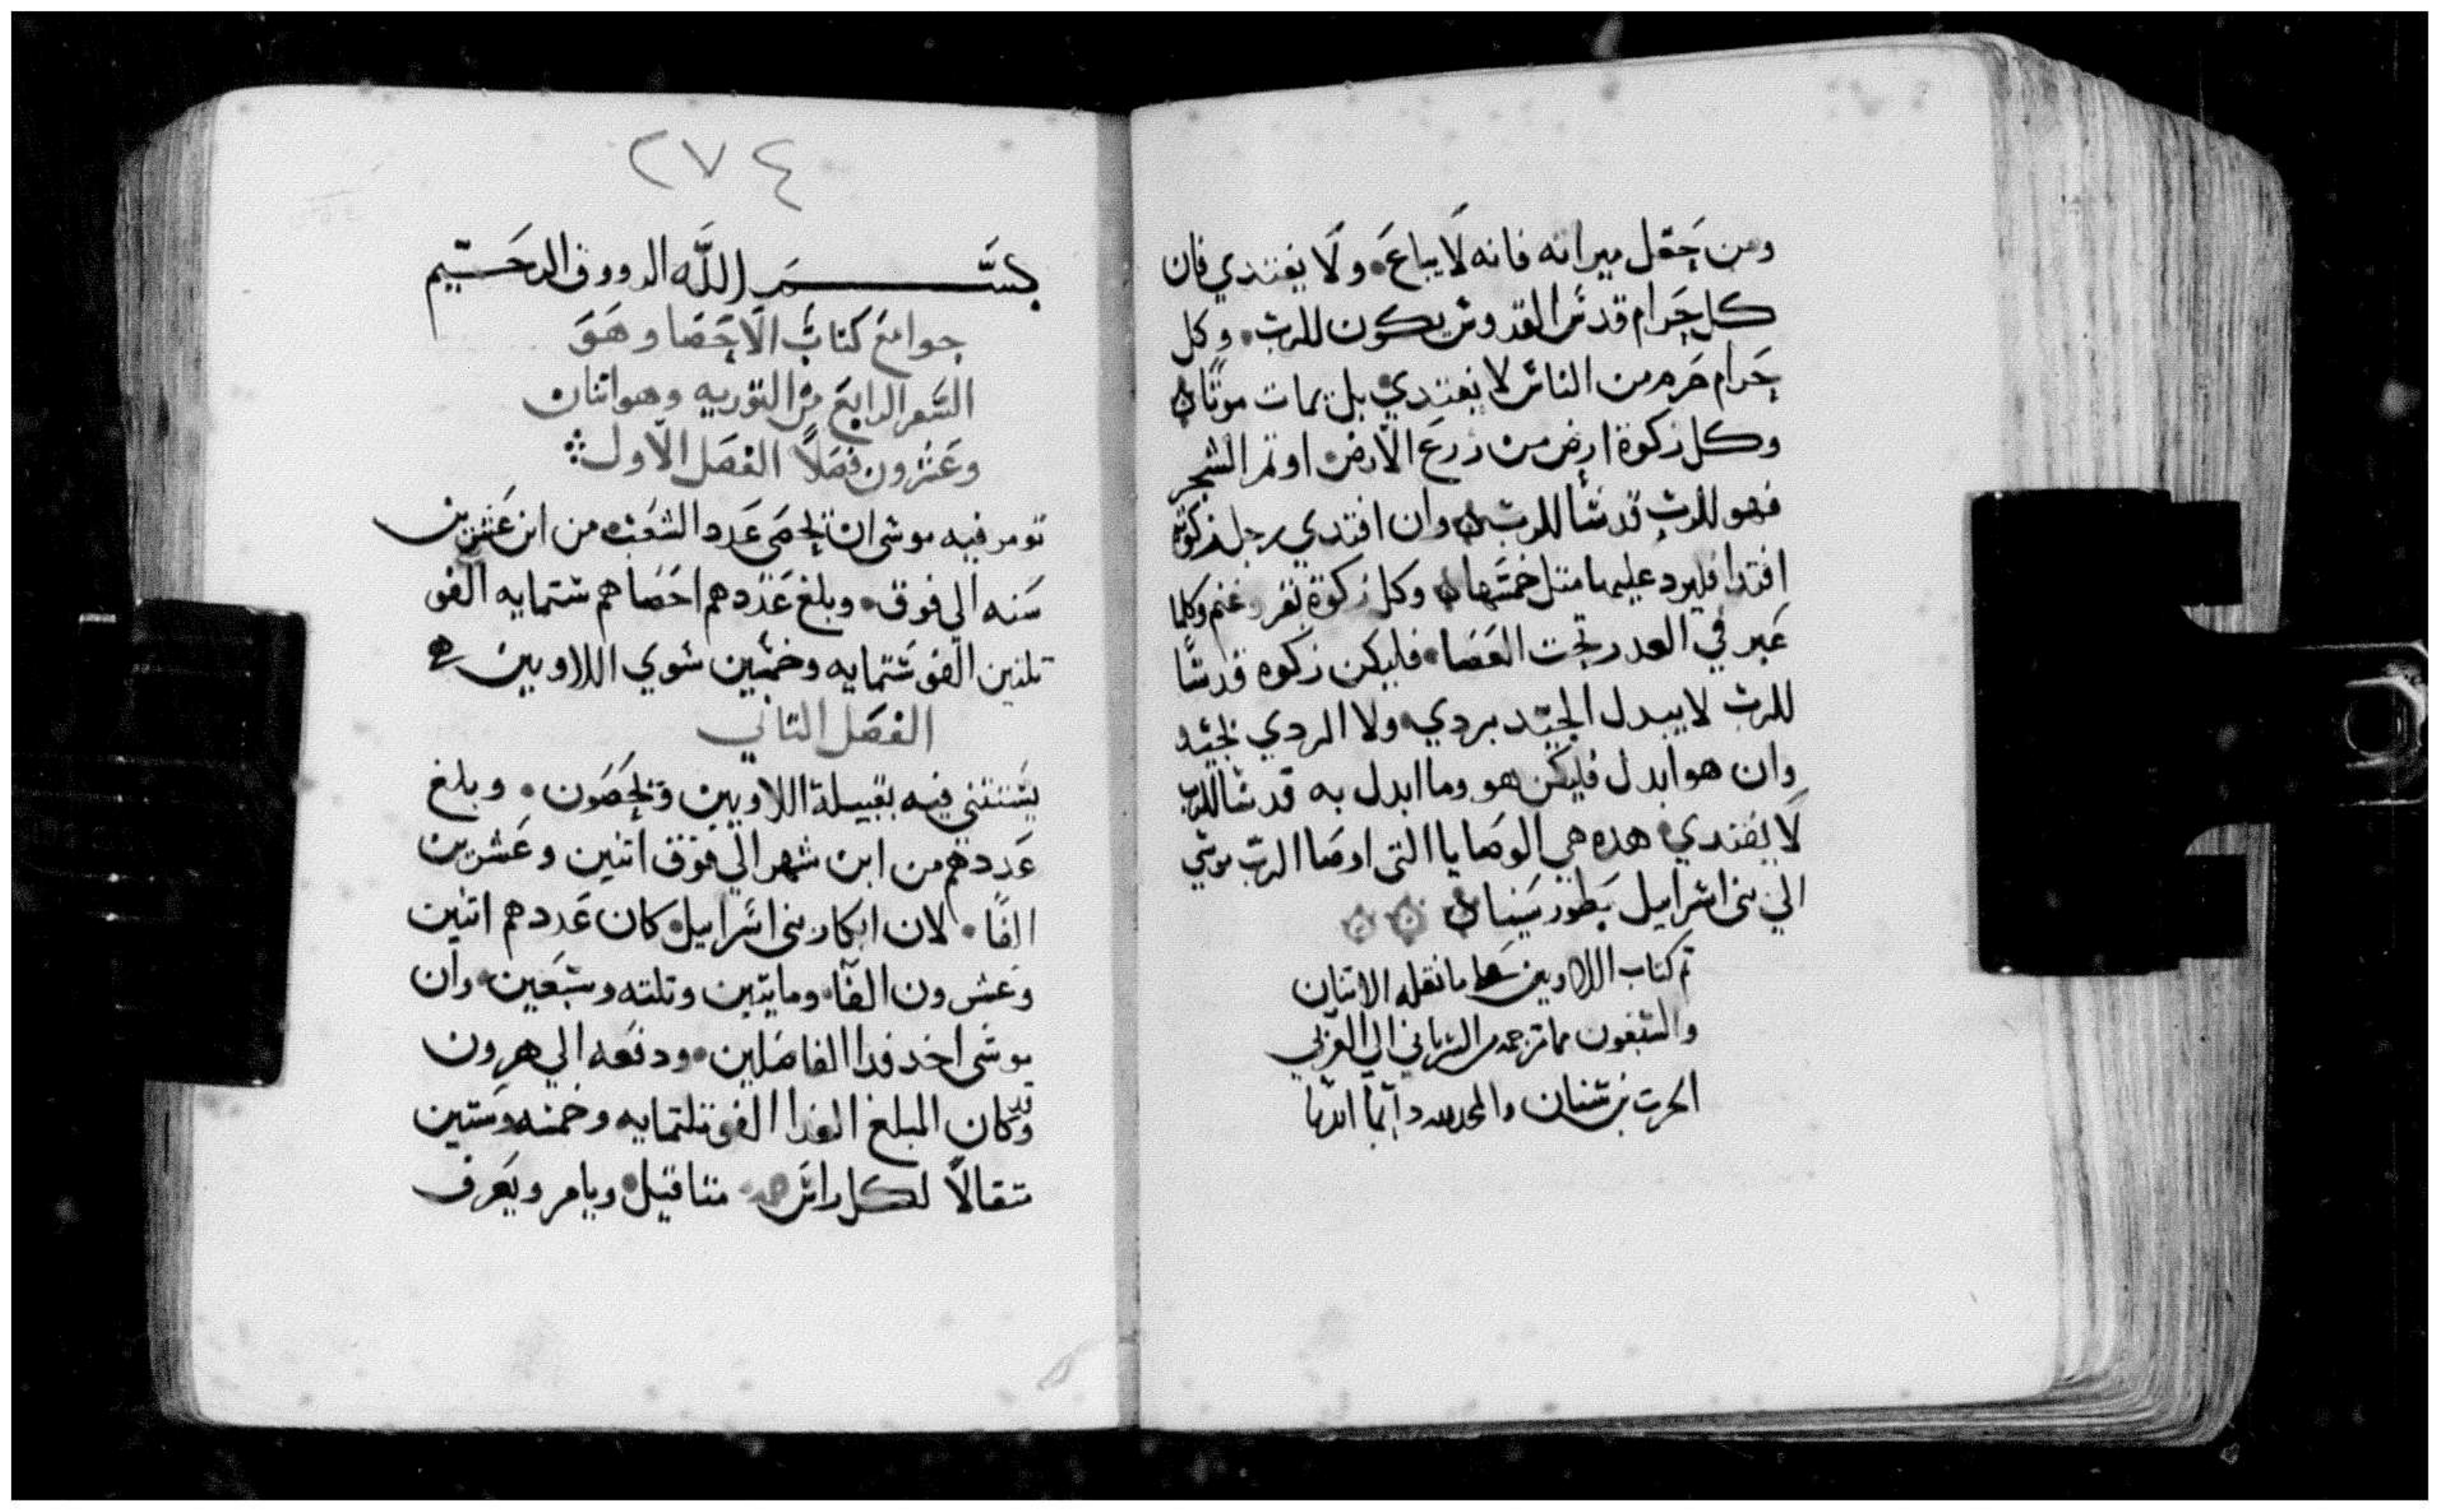 ومن حقل ميراثه فانه لا يباع ولا يفتدي فان
كل حرام قدس القدوس يكون للرب وكل
حرام حرم من الناس لا يفتدي بل يمات موتًا
وكل زكوة ارض من زرع الارض او ثمر الشجر
فهو للرب قدسًا للرب وان افتدي رجل زكوته
افتدا فليرد عليها مثل خمسها وكل زكوة بقر وغنم وكلما
عبر في العدد تحت العصا فليكن زكوه قدسًا
للرب لا يبدل الجيد بردي ولا الردي بجيد
وان هو ابدل فليكن هو وما ابدل به قدسًا للرب
لا يفتدي هذه هي الوصايا التي اوصا الرب موسي
الي بني اسراييل بطور سينا
تم كتاب اللاويين مما نقله الاثنان
والسبعون مما ترجمه من السرياني الي العربي
الحرث بن سنان والمجد لله دايمًا ابديا
٢٧٤
بسم الله الرووف الرحيم
جوامع كتاب الاحصا وهو
السفر الرابع من التوريه وهو اتنان
وعشرون فصلاً الفصل الاول
تومر فيه موسى ان يحصى عدد الشعب من ابن عشرين
سنه الي فوق وبلغ عددهم احصاهم ستمايه الف
تلتين الف وستمايه وخمسين سوي اللاويين
الفصل التاني
يستتني فيه بقبيلة اللاويين ويحصون وبلغ
عددهم من ابن شهر الي فوق اتنين وعشرين
الفًا لان ابكار بني اسراييل كان عددهم اتنين
وعشرون الفًا ومايتين وتلته وسبعين وان
موسى اخد فدا الفاضلين ودفعه الي هرون
وقد كان المبلغ الفدا الف وتلتمايه وخمسه وستين
متقالاً لكل راس متاقيل ويامر ويعرف